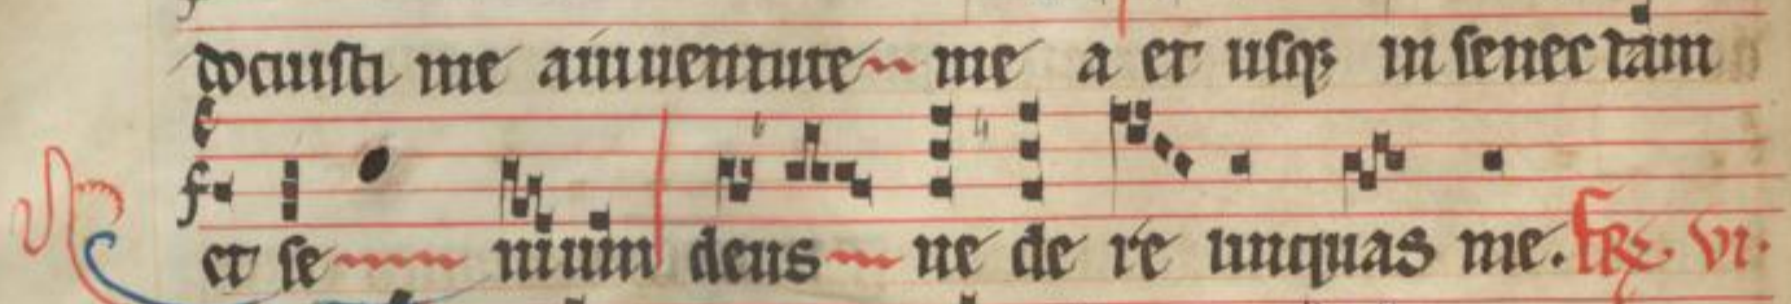 docuisti me a iuuentute me a et usq; in senec tam
et se nium deus ne de re linquas me. fr̃. vi.